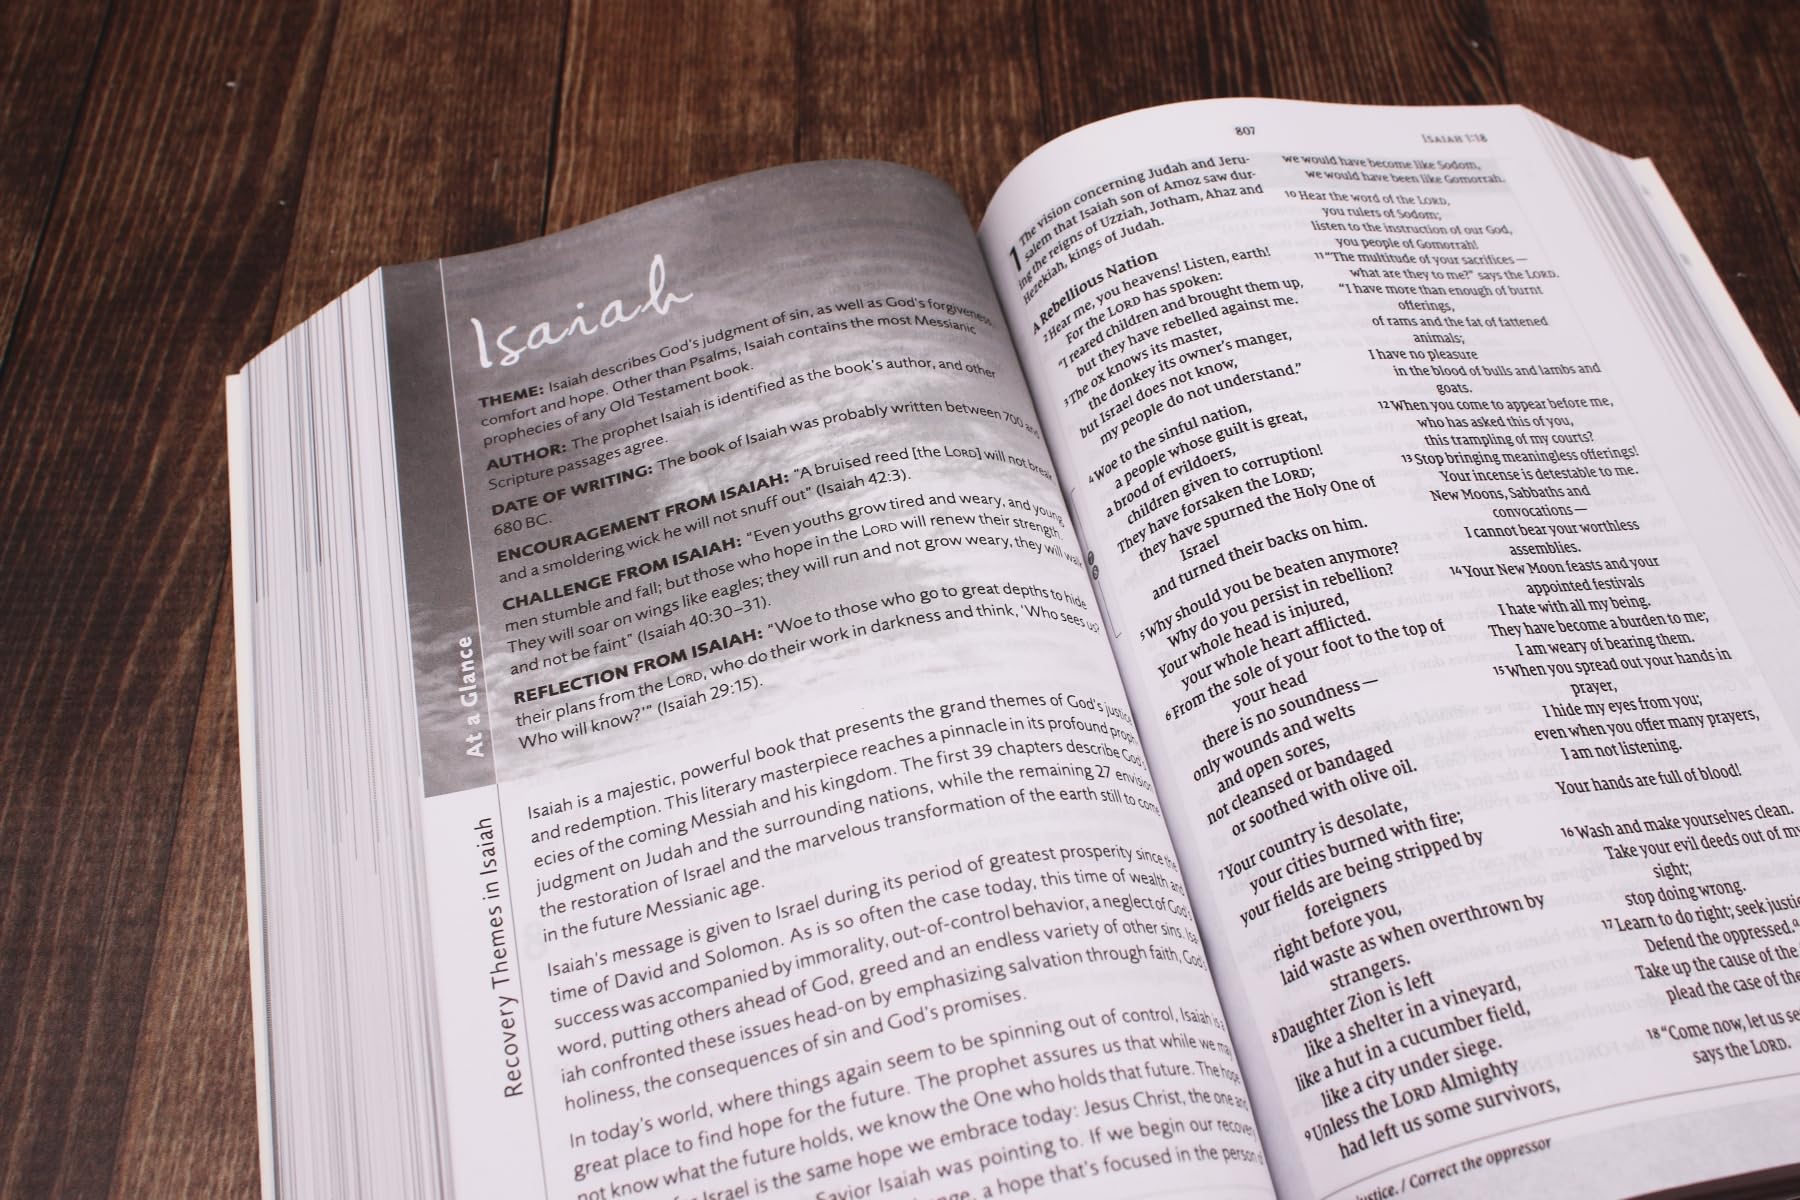 Isaiah
THEME: Isaiah describes God's judgment of sin, as well as God's forgiveness,
comfort and hope. Other than Psalms, Isaiah contains the most Messianic
prophecies of any Old Testament book.
AUTHOR: The prophet Isaiah is identified as the book's author, and other
Scripture passages agree.
DATE OF WRITING: The book of Isaiah was probably written between 700 and
680 BC.
ENCOURAGEMENT FROM ISAIAH: "A bruised reed [the LORD] will not break,
and a smoldering wick he will not snuff out" (Isaiah 42:3).
CHALLENGE FROM ISAIAH: "Even youths grow tired and weary, and young
men stumble and fall; but those who hope in the LORD will renew their strength.
They will soar on wings like eagles; they will run and not grow weary, they will walk
and not be faint" (Isaiah 40:30–31).
REFLECTION FROM ISAIAH: "Woe to those who go to great depths to hide
their plans from the LORD, who do their work in darkness and think, 'Who sees us?
Who will know?'" (Isaiah 29:15).
At a Glance
Isaiah is a majestic, powerful book that presents the grand themes of God's justice
and redemption. This literary masterpiece reaches a pinnacle in its profound proph
ecies of the coming Messiah and his kingdom. The first 39 chapters describe God's
judgment on Judah and the surrounding nations, while the remaining 27 envision
the restoration of Israel and the marvelous transformation of the earth still to come
in the future Messianic age.
Isaiah's message is given to Israel during its period of greatest prosperity since the
time of David and Solomon. As is so often the case today, this time of wealth and
success was accompanied by immorality, out-of-control behavior, a neglect of God's
word, putting others ahead of God, greed and an endless variety of other sins. Isa
iah confronted these issues head-on by emphasizing salvation through faith, God's
holiness, the consequences of sin and God's promises.
In today's world, where things again seem to be spinning out of control, Isaiah is a
great place to find hope for the future. The prophet assures us that while we may
not know what the future holds, we know the One who holds that future. The hope
for Israel is the same hope we embrace today: Jesus Christ, the one and
Savior Isaiah was pointing to. If we begin our recovery
a hope that's focused in the person of
Recovery Themes in Isaiah
807
ISAIAH 1:18
1 The vision concerning Judah and Jeru-
salem that Isaiah son of Amoz saw dur-
ing the reigns of Uzziah, Jotham, Ahaz and
Hezekiah, kings of Judah.
A Rebellious Nation
2 Hear me, you heavens! Listen, earth!
For the LORD has spoken:
"I reared children and brought them up,
but they have rebelled against me.
3 The ox knows its master,
the donkey its owner's manger,
but Israel does not know,
my people do not understand."
4 Woe to the sinful nation,
a people whose guilt is great,
a brood of evildoers,
children given to corruption!
They have forsaken the LORD;
they have spurned the Holy One of
Israel
and turned their backs on him.
5 Why should you be beaten anymore?
Why do you persist in rebellion?
Your whole head is injured,
your whole heart afflicted.
6 From the sole of your foot to the top of
your head
there is no soundness—
only wounds and welts
and open sores,
not cleansed or bandaged
or soothed with olive oil.
7 Your country is desolate,
your cities burned with fire;
your fields are being stripped by
foreigners
right before you,
laid waste as when overthrown by
strangers.
8 Daughter Zion is left
like a shelter in a vineyard,
like a hut in a cucumber field,
like a city under siege.
9 Unless the LORD Almighty
had left us some survivors,
we would have become like Sodom,
we would have been like Gomorrah.
10 Hear the word of the LORD,
you rulers of Sodom;
listen to the instruction of our God,
you people of Gomorrah!
11 "The multitude of your sacrifices—
what are they to me?" says the LORD.
"I have more than enough of burnt
offerings,
of rams and the fat of fattened
animals;
I have no pleasure
in the blood of bulls and lambs and
goats.
12 When you come to appear before me,
who has asked this of you,
this trampling of my courts?
13 Stop bringing meaningless offerings!
Your incense is detestable to me.
New Moons, Sabbaths and
convocations—
I cannot bear your worthless
assemblies.
14 Your New Moon feasts and your
appointed festivals
I hate with all my being.
They have become a burden to me;
I am weary of bearing them.
15 When you spread out your hands in
prayer,
I hide my eyes from you;
even when you offer many prayers,
I am not listening.
Your hands are full of blood!
16 Wash and make yourselves clean.
Take your evil deeds out of my
sight;
stop doing wrong.
17 Learn to do right; seek justic
Defend the oppressed.a
Take up the cause of the
plead the case of the
18 "Come now, let us se
says the LORD.
ustice. / Correct the oppressor